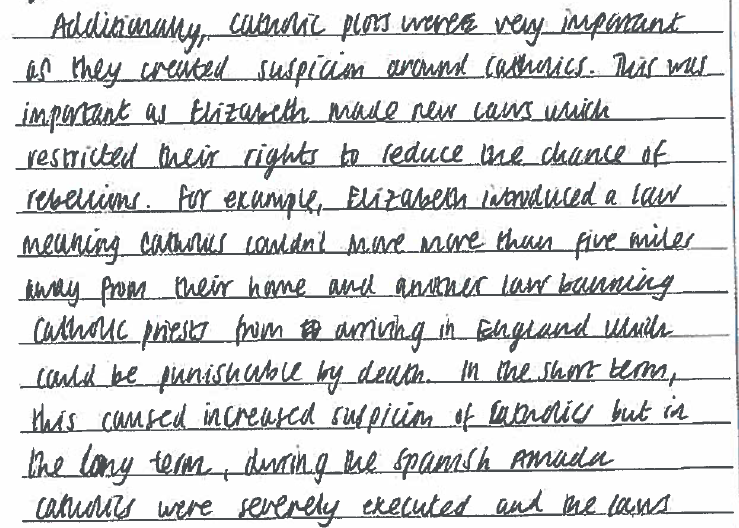 Additionally, catholic plots were very important
as they created suspicion around catholics. This was
important as Elizabeth made new laws which
restricted their rights to reduce the chance of
rebellions. For example, Elizabeth introduced a law
meaning catholics couldn't move more than five miles
away from their home and another law banning
catholic priests from arriving in England which
could be punishable by death. In the short term,
this caused increased suspicion of Catholics but in
the long term, during the Spanish Armada
catholics were severely executed and the laws